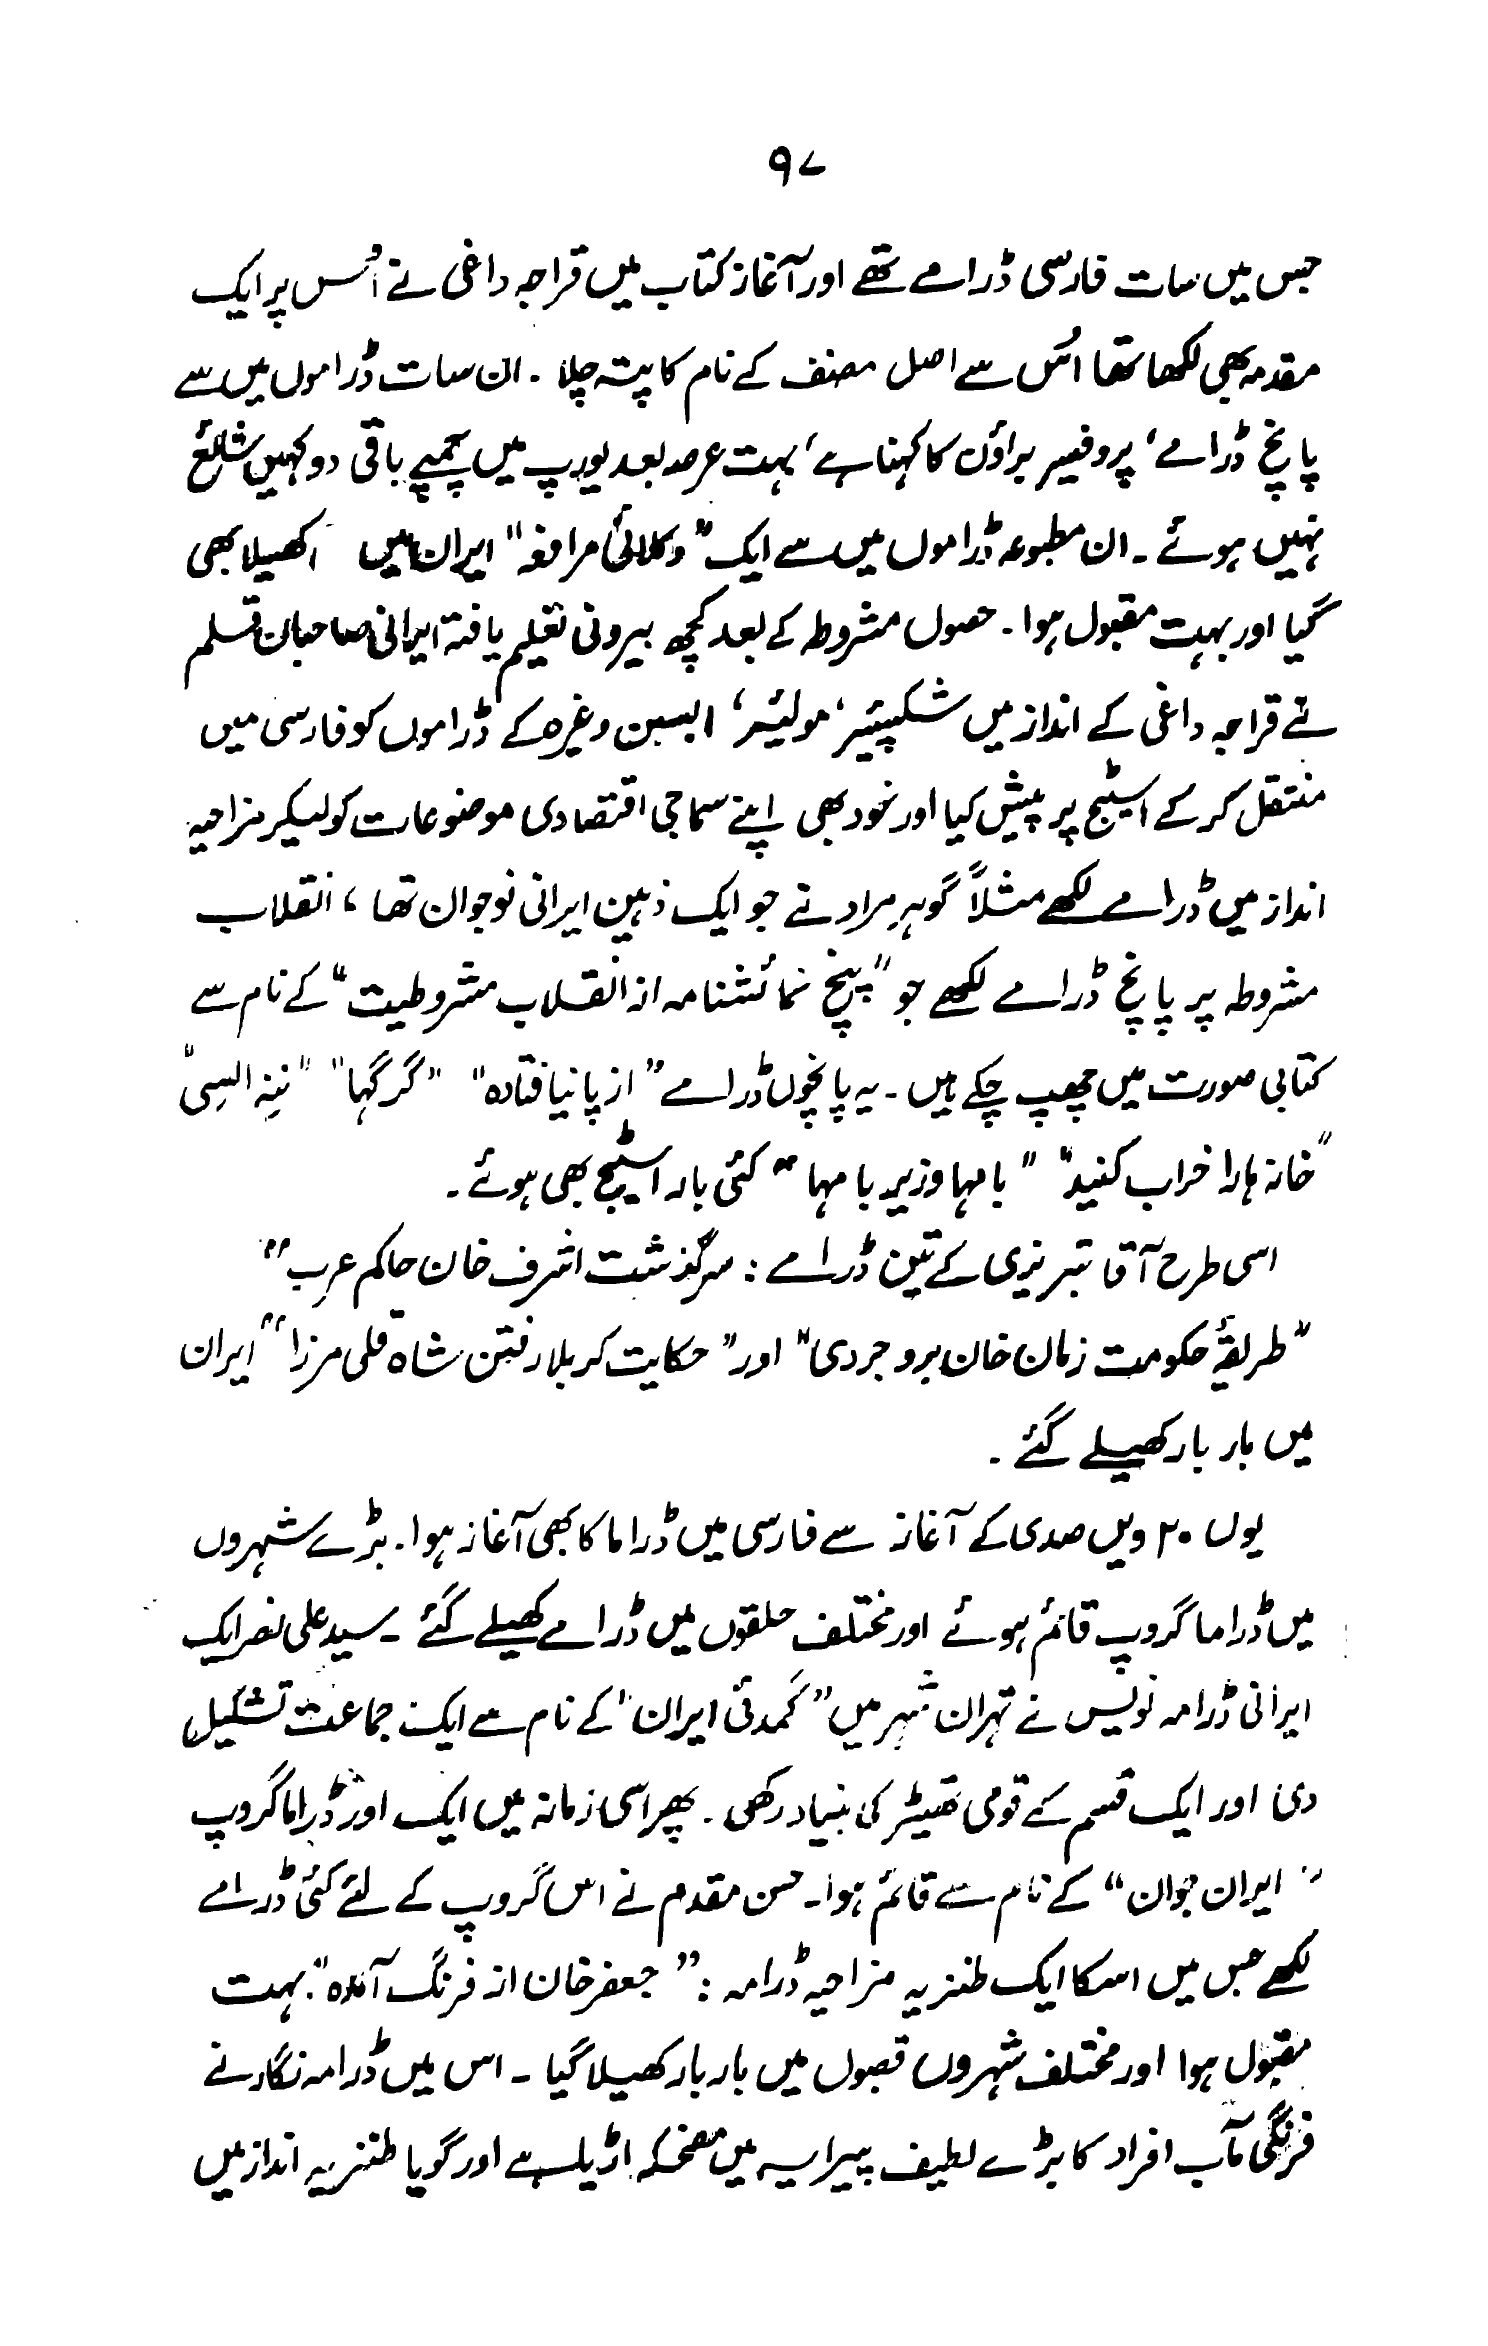 ۹۷
جس میں سات فارسی ڈرامے تھے اور آغاز کتاب میں قراجہ داغی نے اُس پر ایک
مقدمہ بھی لکھا تھا اُس سے اصل مصنف کے نام کا پتہ چلا ۔ ان سات ڈراموں میں سے
پانچ ڈرامے، پروفیسر براؤن کا کہنا ہے، بہت عرصہ بعد یورپ میں چھپے باقی دو کہیں شائع
نہیں ہوئے ۔ ان مطبوعہ ڈراموں میں سے ایک "وکلائی مرافعہ" ایران میں کھیلا بھی
گیا اور بہت مقبول ہوا ۔ حصول مشروطہ کے بعد کچھ بیرونی تعلیم یافتہ ایرانی صاحبان قلم
نے قراجہ داغی کے انداز میں شکسپئیر، مولئیر، ابسن وغیرہ کے ڈراموں کو فارسی میں
منتقل کر کے اسٹیج پر پیش کیا اور خود بھی اپنے سماجی اقتصادی موضوعات کو لیکر مزاحیہ
انداز میں ڈرامے لکھے مثلاً گوہرِ مراد نے جو ایک ذہین ایرانی نوجوان تھا، انقلاب
مشروطہ پر پانچ ڈرامے لکھے جو "پنج نمائشنامہ از انقلاب مشروطیت" کے نام سے
کتابی صورت میں چھپ چکے ہیں ۔ یہ پانچوں ڈرامے "از پا نیافتادہ" "گرگہا" "ننہ انسی"
"خانہ ہا را خراب کنید" "بامہا و زیر بامہا" کئی بار اسٹیج بھی ہوئے ۔
اسی طرح آقا تبریزی کے تین ڈرامے : سرگذشت اشرف خان حاکم عرب"
"طریقۂ حکومت زمان خان بروجردی" اور "حکایت کربلا رفتن شاہ قلی مرزا" ایران
میں بار بار کھیلے گئے ۔
یوں ۲۰ ویں صدی کے آغاز سے فارسی میں ڈراما کا بھی آغاز ہوا ۔ بڑے شہروں
میں ڈراما گروپ قائم ہوئے اور مختلف حلقوں میں ڈرامے کھیلے گئے ۔ سید علی نصر ایک
ایرانی ڈرامہ نویس نے تہران شہر میں "کمدئی ایران" کے نام سے ایک جماعت تشکیل
دی اور ایک قسم کے قومی تھیٹر کی بنیاد رکھی ۔ پھر اسی زمانہ میں ایک اور ڈراما گروپ
"ایران جوان" کے نام سے قائم ہوا ۔ حسن مقدم نے اس گروپ کے لئے کئی ڈرامے
لکھے جس میں اسکا ایک طنزیہ مزاحیہ ڈرامہ : "جعفر خان از فرنگ آمدہ" بہت
مقبول ہوا اور مختلف شہروں قصبوں میں بار بار کھیلا گیا ۔ اس میں ڈرامہ نگار نے
فرنگی مآب افراد کا بڑے لطیف پیرایہ میں مضحکہ اڑایا ہے اور گویا طنزیہ انداز میں